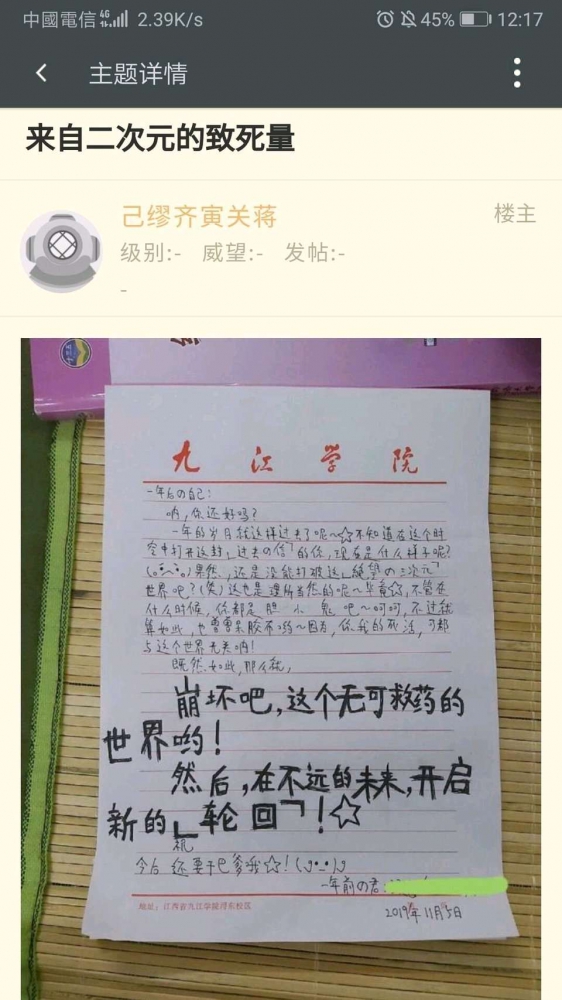 中國電信 4G 2.39K/s 45% 12:17
主题详情
来自二次元的致死量
己缪齐寅关蒋
楼主
级别:- 威望:- 发帖:-
-
九江学院
一年后の自己:
呐,你还好吗?
一年的岁月就这样过去了呢~☆不知道在这个时
空中打开这封「过去の信」的你,现在是什么样子呢?
果然,还是没能打破这「绝望の三次元」
世界呢?(笑)这也是理所当然的呢~毕竟☆,不管在
什么时候,你都是胆小鬼吧~呵呵,不过就
算如此,也曹曹某胶不哟~因为,你我的死活,可都
与这个世界无关哟!
既然如此,那么就,
崩坏吧,这个无可救药的
世界哟!
然后,在不远的未来,开启
新的「轮回」!☆
祝
今后还要干巴爹哦☆!
一年前の君:
地址:江西省九江学院浔东校区
2019年11月5日